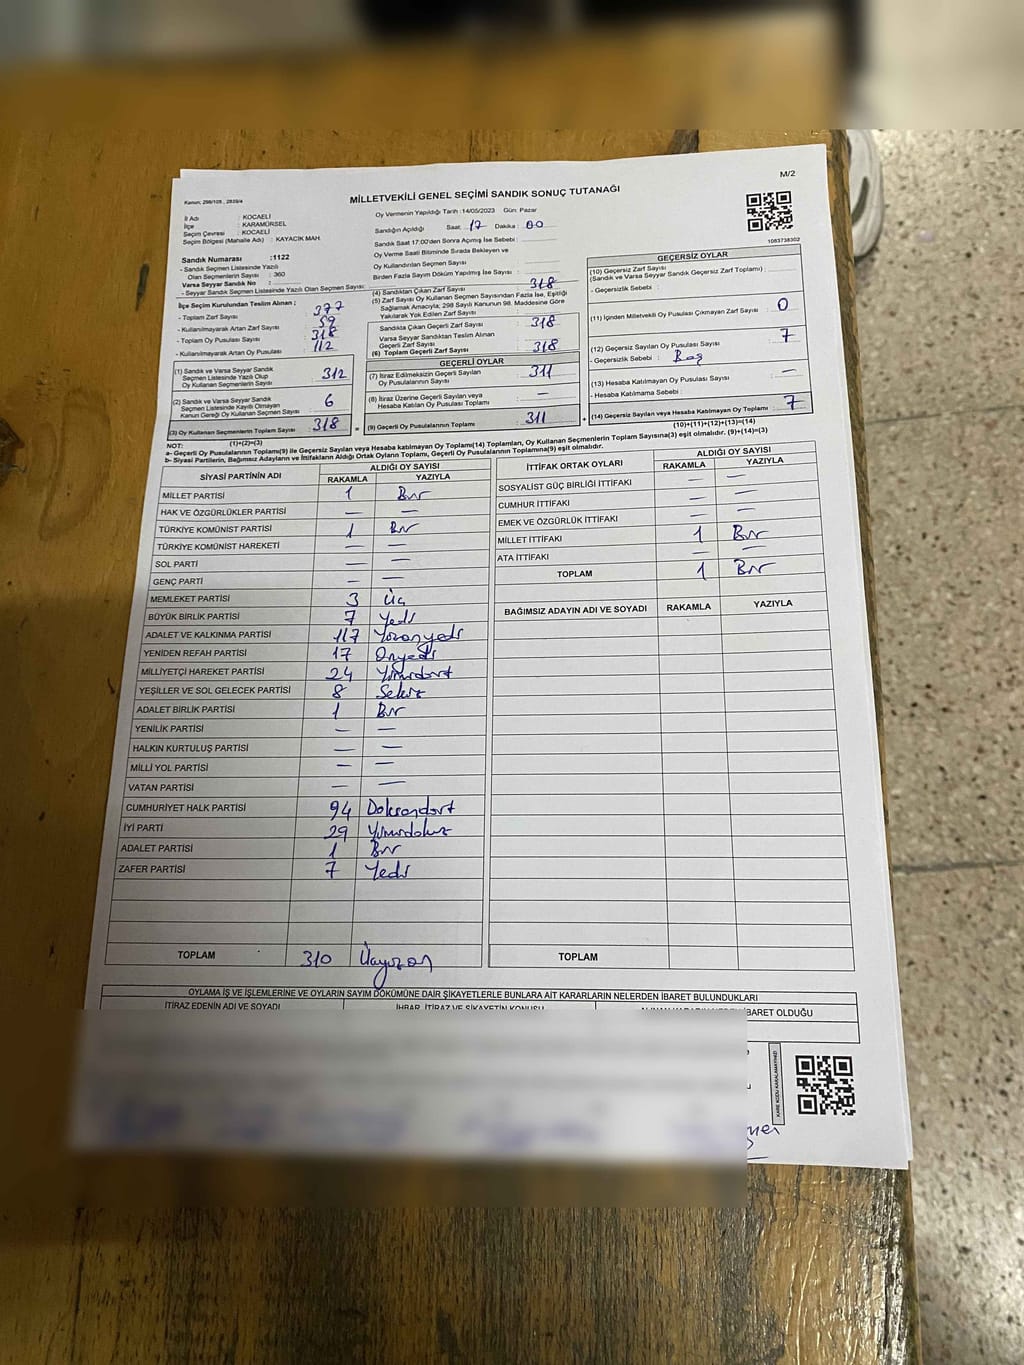 M/2
Kanun; 298/105, 2839/4
MİLLETVEKİLİ GENEL SEÇİMİ SANDIK SONUÇ TUTANAĞI
İl Adı : KOCAELİ
İlçe : KARAMÜRSEL
Seçim Çevresi : KOCAELİ
Seçim Bölgesi (Mahalle Adı) : KAYACIK MAH
Sandık Numarası :1122
- Sandık Seçmen Listesinde Yazılı
Olan Seçmenlerin Sayısı : 360
Varsa Seyyar Sandık No :
- Seyyar Sandık Seçmen Listesinde Yazılı Olan Seçmen Sayısı:
Oy Vermenin Yapıldığı Tarih :14/05/2023 Gün: Pazar
Sandığın Açıldığı Saat: 17 Dakika : 00
Sandık Saat 17:00'den Sonra Açılmış İse Sebebi :
Oy Verme Saati Bitiminde Sırada Bekleyen ve
Oy Kullandırılan Seçmen Sayısı :
Birden Fazla Sayım Döküm Yapılmış İse Sayısı :
1083738302
İlçe Seçim Kurulundan Teslim Alınan ;
- Toplam Zarf Sayısı : 377
- Kullanılmayarak Artan Zarf Sayısı : 59
- Toplam Oy Pusulası Sayısı : 318
- Kullanılmayarak Artan Oy Pusulası : 112
(1) Sandık ve Varsa Seyyar Sandık
Seçmen Listesinde Yazılı Olup
Oy Kullanan Seçmenlerin Sayısı : 312
(2) Sandık ve Varsa Seyyar Sandık
Seçmen Listesinde Kayıtlı Olmayan
Kanun Gereği Oy Kullanan Seçmen Sayısı : 6
(3) Oy Kullanan Seçmenlerin Toplam Sayısı : 318 =
(1)+(2)=(3)
(4) Sandıktan Çıkan Zarf Sayısı : 318
(5) Zarf Sayısı Oy Kullanan Seçmen Sayısından Fazla İse, Eşitliği
Sağlamak Amacıyla; 298 Sayılı Kanunun 98. Maddesine Göre
Yakılarak Yok Edilen Zarf Sayısı :
Sandıkta Çıkan Geçerli Zarf Sayısı : 318
Varsa Seyyar Sandıktan Teslim Alınan
Geçerli Zarf Sayısı :
(6) Toplam Geçerli Zarf Sayısı : 318
GEÇERLİ OYLAR
(7) İtiraz Edilmeksizin Geçerli Sayılan
Oy Pusulalarının Sayısı : 311
(8) İtiraz Üzerine Geçerli Sayılan veya
Hesaba Katılan Oy Pusulası Toplamı : —
(9) Geçerli Oy Pusulalarının Toplamı : 311 +
GEÇERSİZ OYLAR
(10) Geçersiz Zarf Sayısı
(Sandık ve Varsa Seyyar Sandık Geçersiz Zarf Toplamı) :
- Geçersizlik Sebebi :
(11) İçinden Milletvekili Oy Pusulası Çıkmayan Zarf Sayısı : 0
(12) Geçersiz Sayılan Oy Pusulası Sayısı : 7
- Geçersizlik Sebebi : Boş
(13) Hesaba Katılmayan Oy Pusulası Sayısı : —
- Hesaba Katılmama Sebebi :
(14) Geçersiz Sayılan veya Hesaba Katılmayan Oy Toplamı : 7
(10)+(11)+(12)+(13)=(14)
NOT:
a- Geçerli Oy Pusulalarının Toplamı(9) ile Geçersiz Sayılan veya Hesaba katılmayan Oy Toplamı(14) Toplamları, Oy Kullanan Seçmenlerin Toplam Sayısına(3) eşit olmalıdır. (9)+(14)=(3)
b- Siyasi Partilerin, Bağımsız Adayların ve İttifakların Aldığı Ortak Oyların Toplamı, Geçerli Oy Pusulalarının Toplamına(9) eşit olmalıdır.
SİYASİ PARTİNİN ADI ALDIĞI OY SAYISI
RAKAMLA YAZIYLA
MİLLET PARTİSİ 1 Bir
HAK VE ÖZGÜRLÜKLER PARTİSİ — —
TÜRKİYE KOMÜNİST PARTİSİ 1 Bir
TÜRKİYE KOMÜNİST HAREKETİ — —
SOL PARTİ — —
GENÇ PARTİ — —
MEMLEKET PARTİSİ 3 Üç
BÜYÜK BİRLİK PARTİSİ 7 Yedi
ADALET VE KALKINMA PARTİSİ 117 Yüzonyedi
YENİDEN REFAH PARTİSİ 17 Onyedi
MİLLİYETÇİ HAREKET PARTİSİ 24 Yirmidört
YEŞİLLER VE SOL GELECEK PARTİSİ 8 Sekiz
ADALET BİRLİK PARTİSİ 1 Bir
YENİLİK PARTİSİ — —
HALKIN KURTULUŞ PARTİSİ — —
MİLLİ YOL PARTİSİ — —
VATAN PARTİSİ — —
CUMHURİYET HALK PARTİSİ 94 Doksandört
İYİ PARTİ 29 Yirmidokuz
ADALET PARTİSİ 1 Bir
ZAFER PARTİSİ 7 Yedi
TOPLAM 310 Üçyüzon
İTTİFAK ORTAK OYLARI ALDIĞI OY SAYISI
RAKAMLA YAZIYLA
SOSYALİST GÜÇ BİRLİĞİ İTTİFAKI — —
CUMHUR İTTİFAKI — —
EMEK VE ÖZGÜRLÜK İTTİFAKI — —
MİLLET İTTİFAKI 1 Bir
ATA İTTİFAKI — —
TOPLAM 1 Bir
BAĞIMSIZ ADAYIN ADI VE SOYADI RAKAMLA YAZIYLA
TOPLAM
OYLAMA İŞ VE İŞLEMLERİNE VE OYLARIN SAYIM DÖKÜMÜNE DAİR ŞİKAYETLERLE BUNLARA AİT KARARLARIN NELERDEN İBARET BULUNDUKLARI
İTİRAZ EDENİN ADI VE SOYADI İHBAR, İTİRAZ VE ŞİKAYETİN KONUSU İBARET OLDUĞU
KARE KODU KARALAMAYINIZ